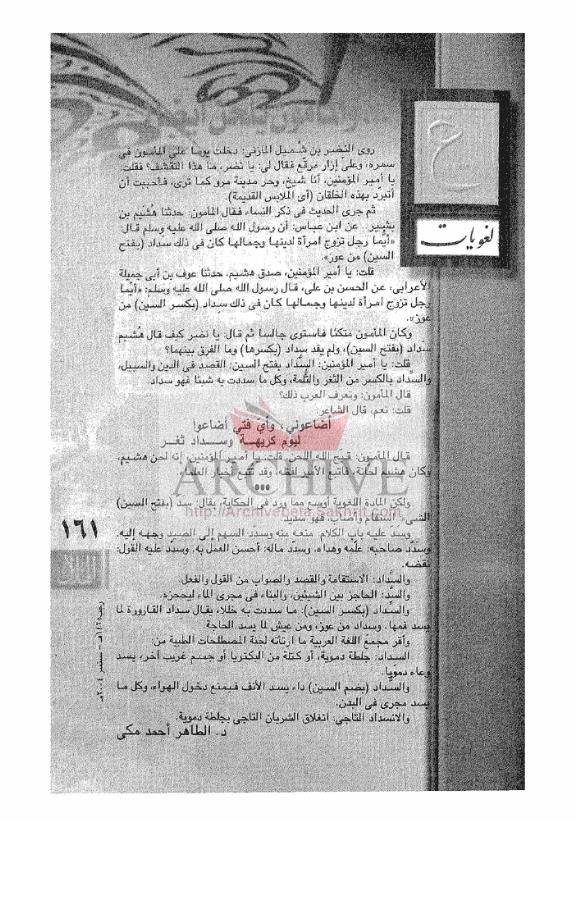 والمأمون يلحن البغض
لغويات
روى النضر بن شُميل المازني: دخلت يوما على المأمون فى
سمره، وعلى إزار مرقع فقال لى: يا نضر، ما هذا التقشف؟ فقلت:
يا أمير المؤمنين، أنا شيخ، وحر مدينة مرو كما ترى، فأحببت أن
أتبرد بهذه الخلقان (أى الملابس القديمة).
ثم جرى الحديث فى ذكر النساء فقال المأمون: حدثنا هُشيم بن
بشير.. عن ابن عباس: أن رسول الله صلى الله عليه وسلم قال:
«أيُما رجل تزوج امرأة لدينها وجمالها كان فى ذلك سَداد (بفتح
السين) من عوز».
قلت: يا أمير المؤمنين، صدق هشيم، حدثنا عوف بن أبى جميلة
الأعرابى، عن الحسن بن على، قال رسول الله صلى الله عليه وسلم: «أيما
رجل تزوج امرأة لدينها وجمالها كان فى ذلك سِداد (بكسر السين) من
عوز».
وكان المأمون متكئا فاستوى جالسا ثم قال: يا نضر كيف قال هشيم
سداد (بفتح السين)، ولم يقل سِداد (بكسرها) وما الفرق بينهما؟
قلت: يا أمير المؤمنين: السَّداد بفتح السين: القصد فى الدين والسبيل،
والسِّداد بالكسر من الثغر والثُلمة، وكل ما سددت به شيئا فهو سداد.
قال المأمون: وتعرف العرب ذلك؟
قلت: نعم، قال الشاعر:
أضاعوني، وأي فتى أضاعوا
ليوم كريهـة وسـداد ثغـر
قال المأمون: قبح الله اللحن. قلت: يا أمير المؤمنين، إنه لحن هشيم،
وكان هشيم لحانة، فاتبع الأمير لفظه، وقد تتبع أخبار العلماء.
ARCHIVE
http://Archivebeta.Sakhrit.com
ولكن المادة اللغوية أوسع مما ورد فى الحكاية، يقال: سدَّ (بفتح السين)
الشىء: استقام وأصاب، فهو سديد
وسد عليه باب الكلام: منعه منه وسدّد السهم إلى الصيد وجهه إليه.
وسدّد صاحبه: علمه وهداه، وسدّد ماله: أحسن العمل به. وسدّد عليه القول:
نقضه.
والسَّداد: الاستقامة والقصد والصواب من القول والفعل
والسدّ: الحاجز بين الشيئين، والبناء فى مجرى الماء ليحجزه.
والسِّداد (بكسر السين): ما سددت به خللا، يقال سداد القارورة لما
يسد فمها، وسداد من عوز، ومن عيش لما يسد الحاجة
وأقر مجمع اللغة العربية ما ارتأته لجنة المصطلحات الطبية من:
السداد: جلطة دموية، أو كتلة من البكتريا أو جسم غريب آخر، يسد
وعاء دمويا.
والسُداد (بضم السين) داء يسد الأنف فيمنع دخول الهواء، وكل ما
يسد مجرى فى البدن.
والانسداد التاجى: انغلاق الشريان التاجى بجلطة دموية.
د. الطاهر أحمد مكى
١٦١